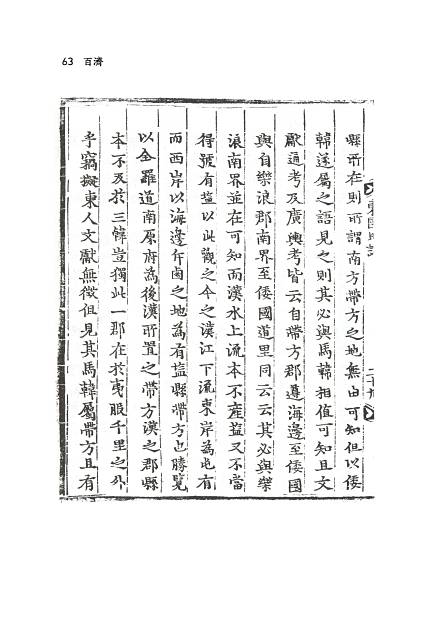 63 百濟
縣所在則所謂南方帶方之地無由可知但以倭
韓遂屬之語見之則其必與馬韓相值可知且文
獻通考及廣輿考皆云自帶方郡遵海邊至倭國
與自樂浪郡南界至倭國道里同云云其必與樂
浪南界並在可知而漢水上流本不産塩又不當
得號有塩以此觀之今之漢江下流東岸爲屯有
而西岸以海邊斥鹵之地爲有塩縣帶方也勝覽
以全羅道南原府爲後漢所置之帶方漢之郡縣
本不及於三韓豈獨此一郡在於夷服千里之外
乎竊擬東人文獻無徵但見其馬韓屬帶方且有